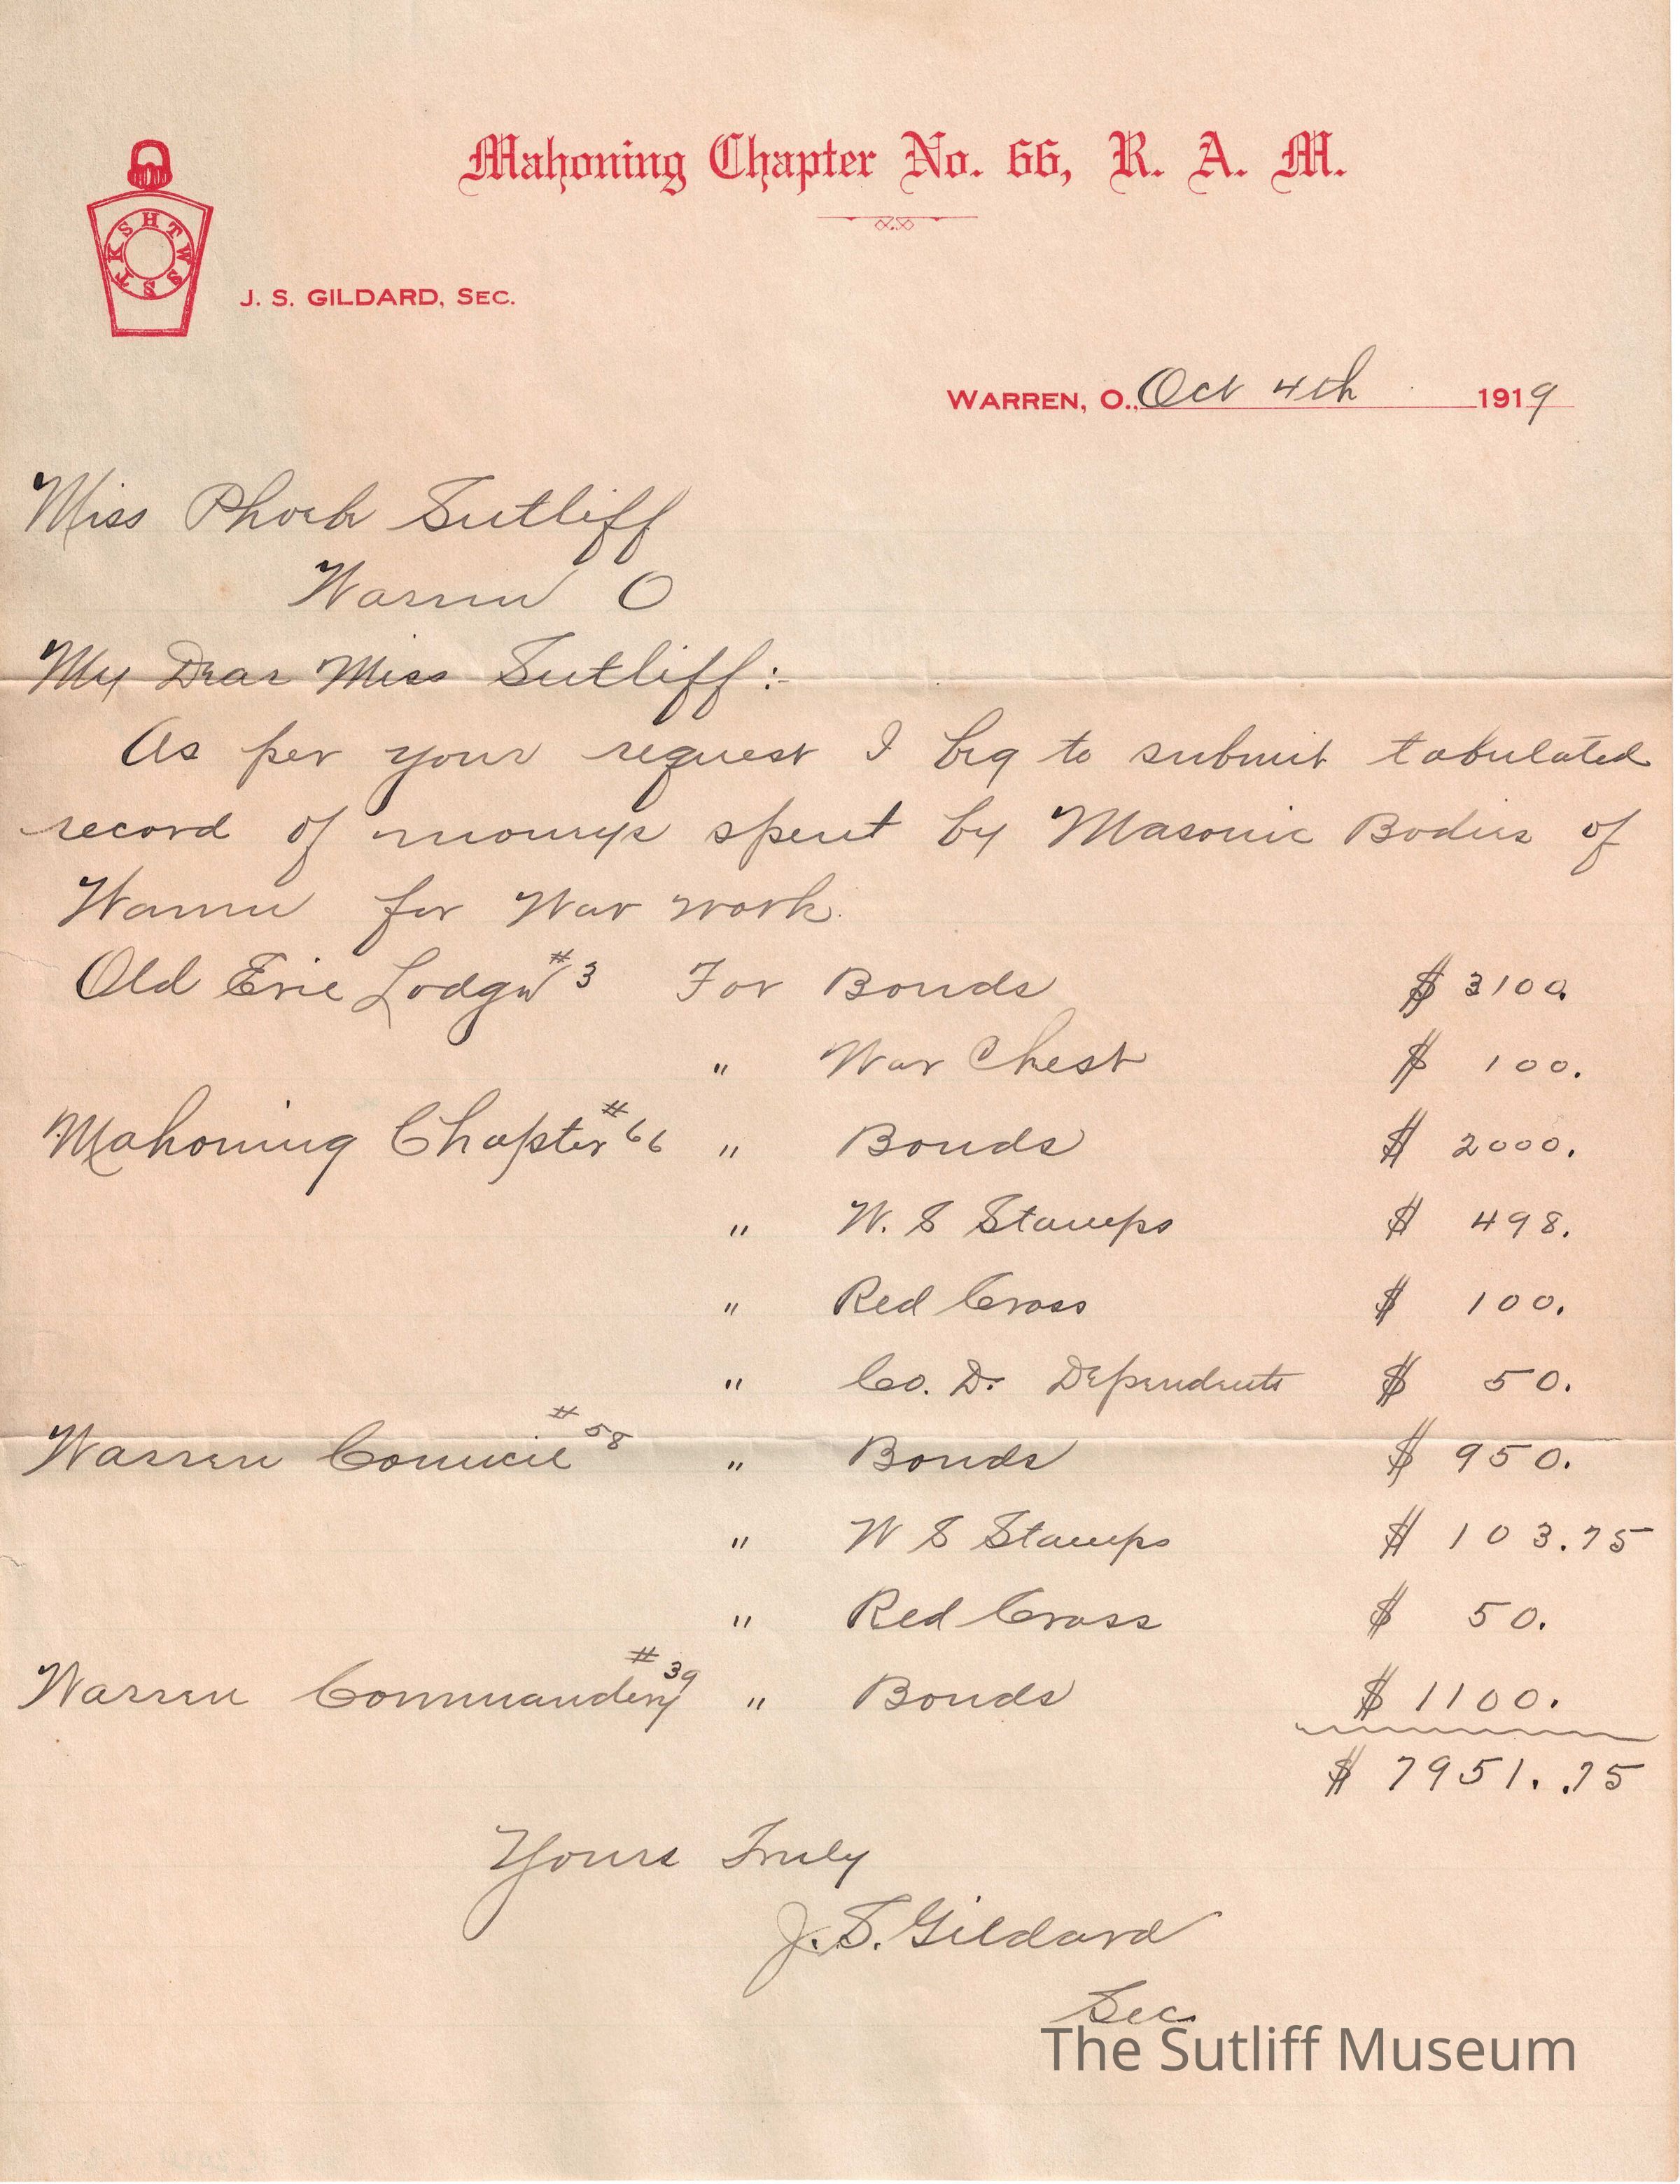 Mahoning Chapter No. 66, R. A. M.
H T W S S T K S
J. S. GILDARD, SEC.
WARREN, O., Oct 4th 1919
Miss Phoebe Sutliff
Warren O
My Dear Miss Sutliff:-
As per your request I beg to submit tabulated
record of moneys spent by Masonic Bodies of
Warren for War work.
Old Erie Lodge #3 For Bonds $ 3100.
" War Chest $ 100.
Mahoning Chapter #66 " Bonds $ 2000.
" W. S Stamps $ 498.
" Red Cross $ 100.
" Co. D. Dependents $ 50.
Warren Council #58 " Bonds $ 950.
" W S Stamps $ 103.75
" Red Cross $ 50.
Warren Commandery #39 " Bonds $ 1100.
$ 7951. .75
Yours Truly
J. S. Gildard
Sec.
The Sutliff Museum